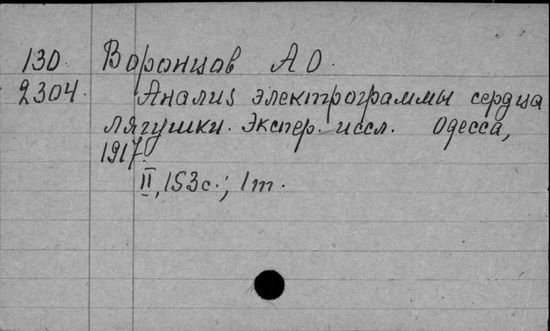 130. Воронцов А О.
2304. Анализ электрограммы сердца
лягушки. Экспер. иссл. Одесса,
1917.
II, 153с.; 1т.